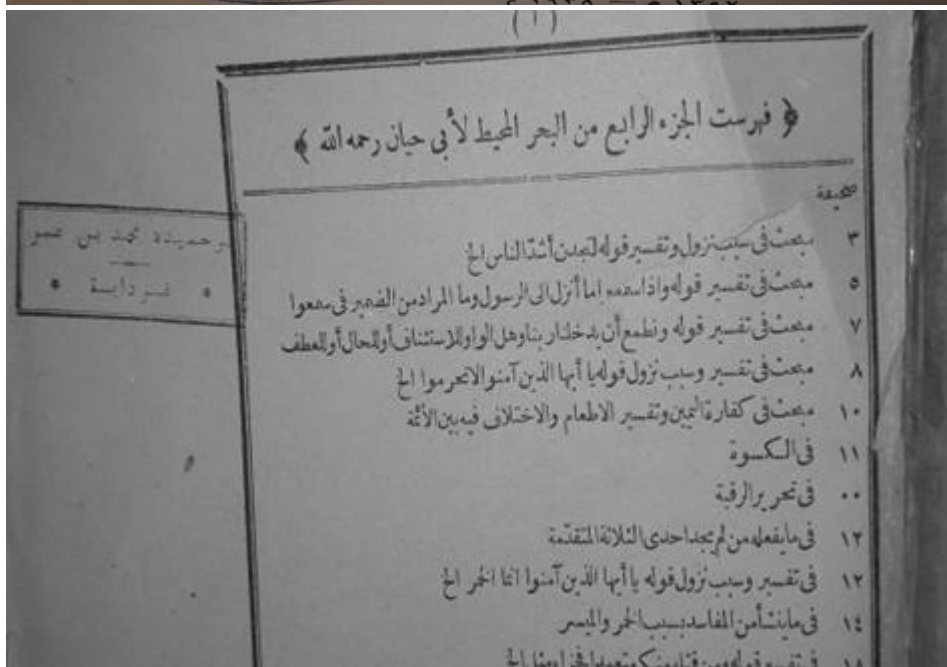 (١)
﴿ فهرست الجزء الرابع من البحر المحيط لأبي حيان رحمه الله ﴾
صحيفة
٣ مبحث في سبب نزول وتفسير قوله لتجدن أشد الناس الخ
٥ مبحث في تفسير قوله واذا سمعوا ما أنزل الى الرسول وما المراد من الضمير في سمعوا
٧ مبحث في تفسير قوله ونطمع أن يدخلنا ربنا وهل الواو للاستئناف أو للحال أو للعطف
٨ مبحث في تفسير وسبب نزول قوله يا أيها الذين آمنوا لا تحرموا الخ
١٠ مبحث في كفارة اليمين وتفسير الاطعام والاختلاف فيه بين الأئمة
١١ في الكسوة
٠٠ في تحرير الرقبة
١٢ في ما يفعله من لم يجد احدى الثلاثة المتقدمة
١٢ في تفسير وسبب نزول قوله يا أيها الذين آمنوا انما الخمر الخ
١٤ في ما ينشأ من المفاسد بسبب الخمر والميسر
في تفسير قوله ومن قتله منكم متعمدا فجزاء مثل الخ
حميدة محمد بن عمر
* غرداية *